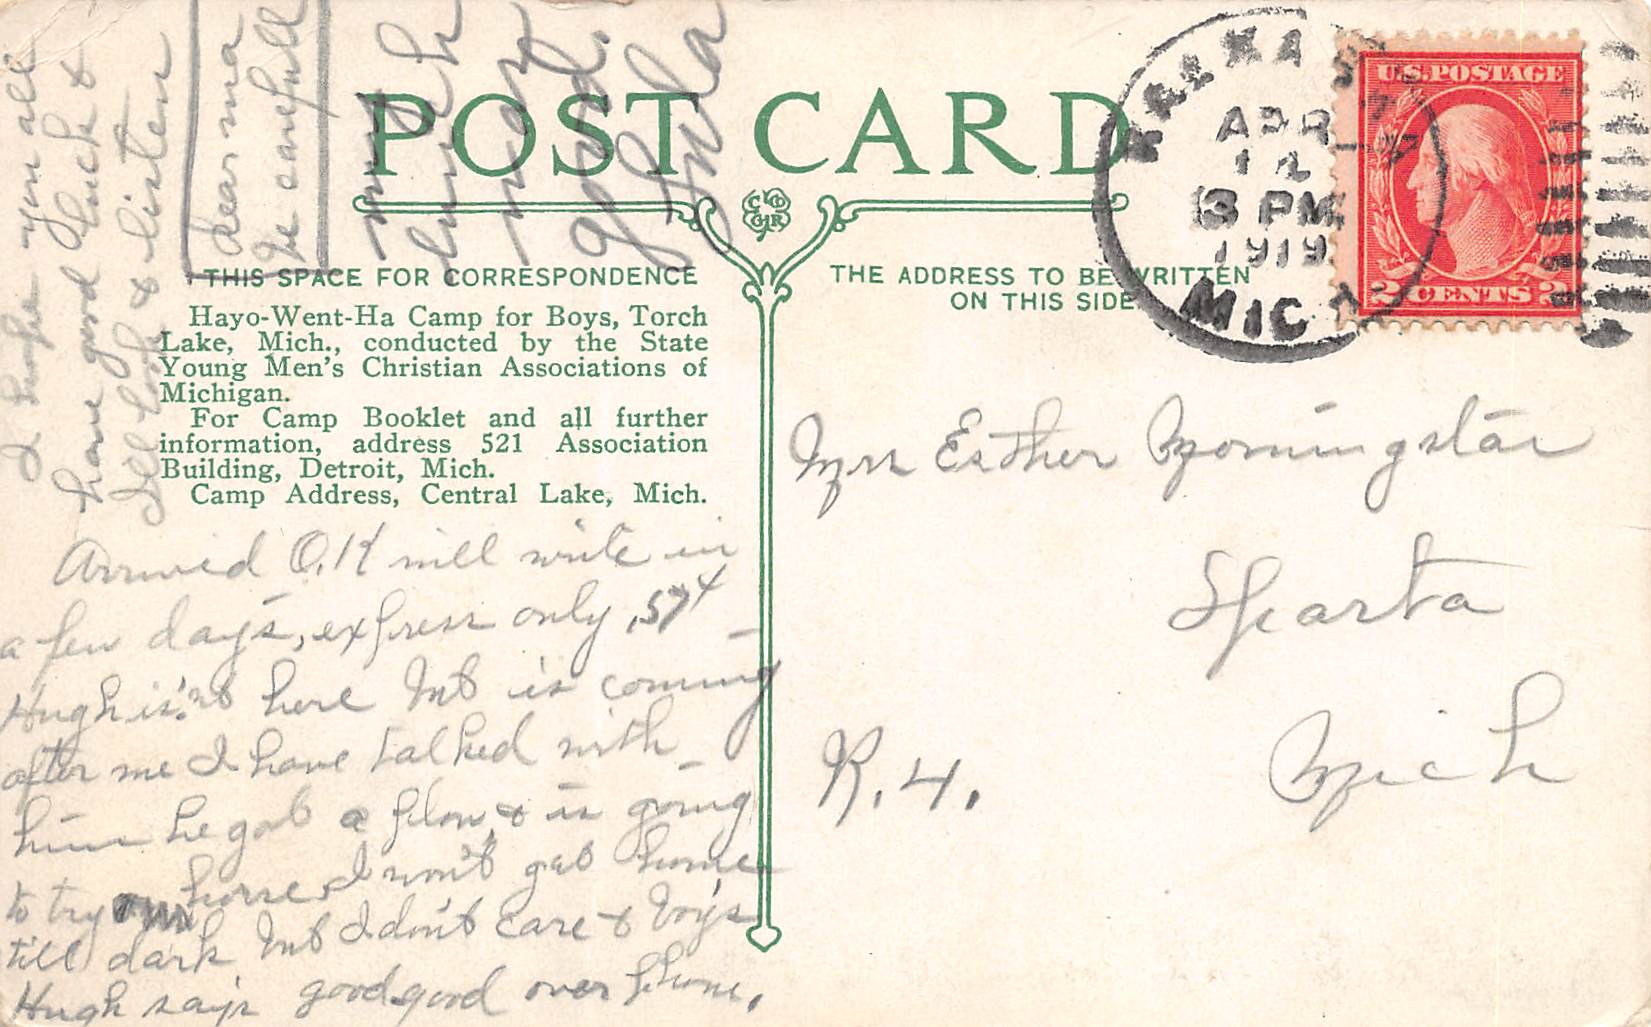 POST CARD
THIS SPACE FOR CORRESPONDENCE
Hayo-Went-Ha Camp for Boys, Torch
Lake, Mich., conducted by the State
Young Men's Christian Associations of
Michigan.
For Camp Booklet and all further
information, address 521 Association
Building, Detroit, Mich.
Camp Address, Central Lake, Mich.
Arrived O.K will write in
a few days, express only .57¢
Hugh is'nt here but is coming
after me I have talked with
him he got a & is going
to try horse, I won't get home
till dark but I don't care & boy's
Hugh says good good over phone.
I hope you all
have good luck &
Ill look & listen
dear ma
be carefull
my
lunch
went
good.
Lula
THE ADDRESS TO BE WRITTEN
ON THIS SIDE
APR
3 PM
1919
MICH
U.S. POSTAGE
2 CENTS 2
Mrs Esther Morningstar
Sparta
Mich
R.4.